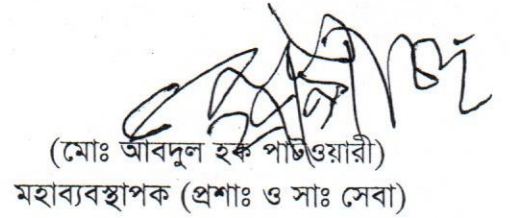 (মোঃ আবদুল হক পাটওয়ারী)
মহাব্যবস্থাপক (প্রশাঃ ও সাঃ সেবা)